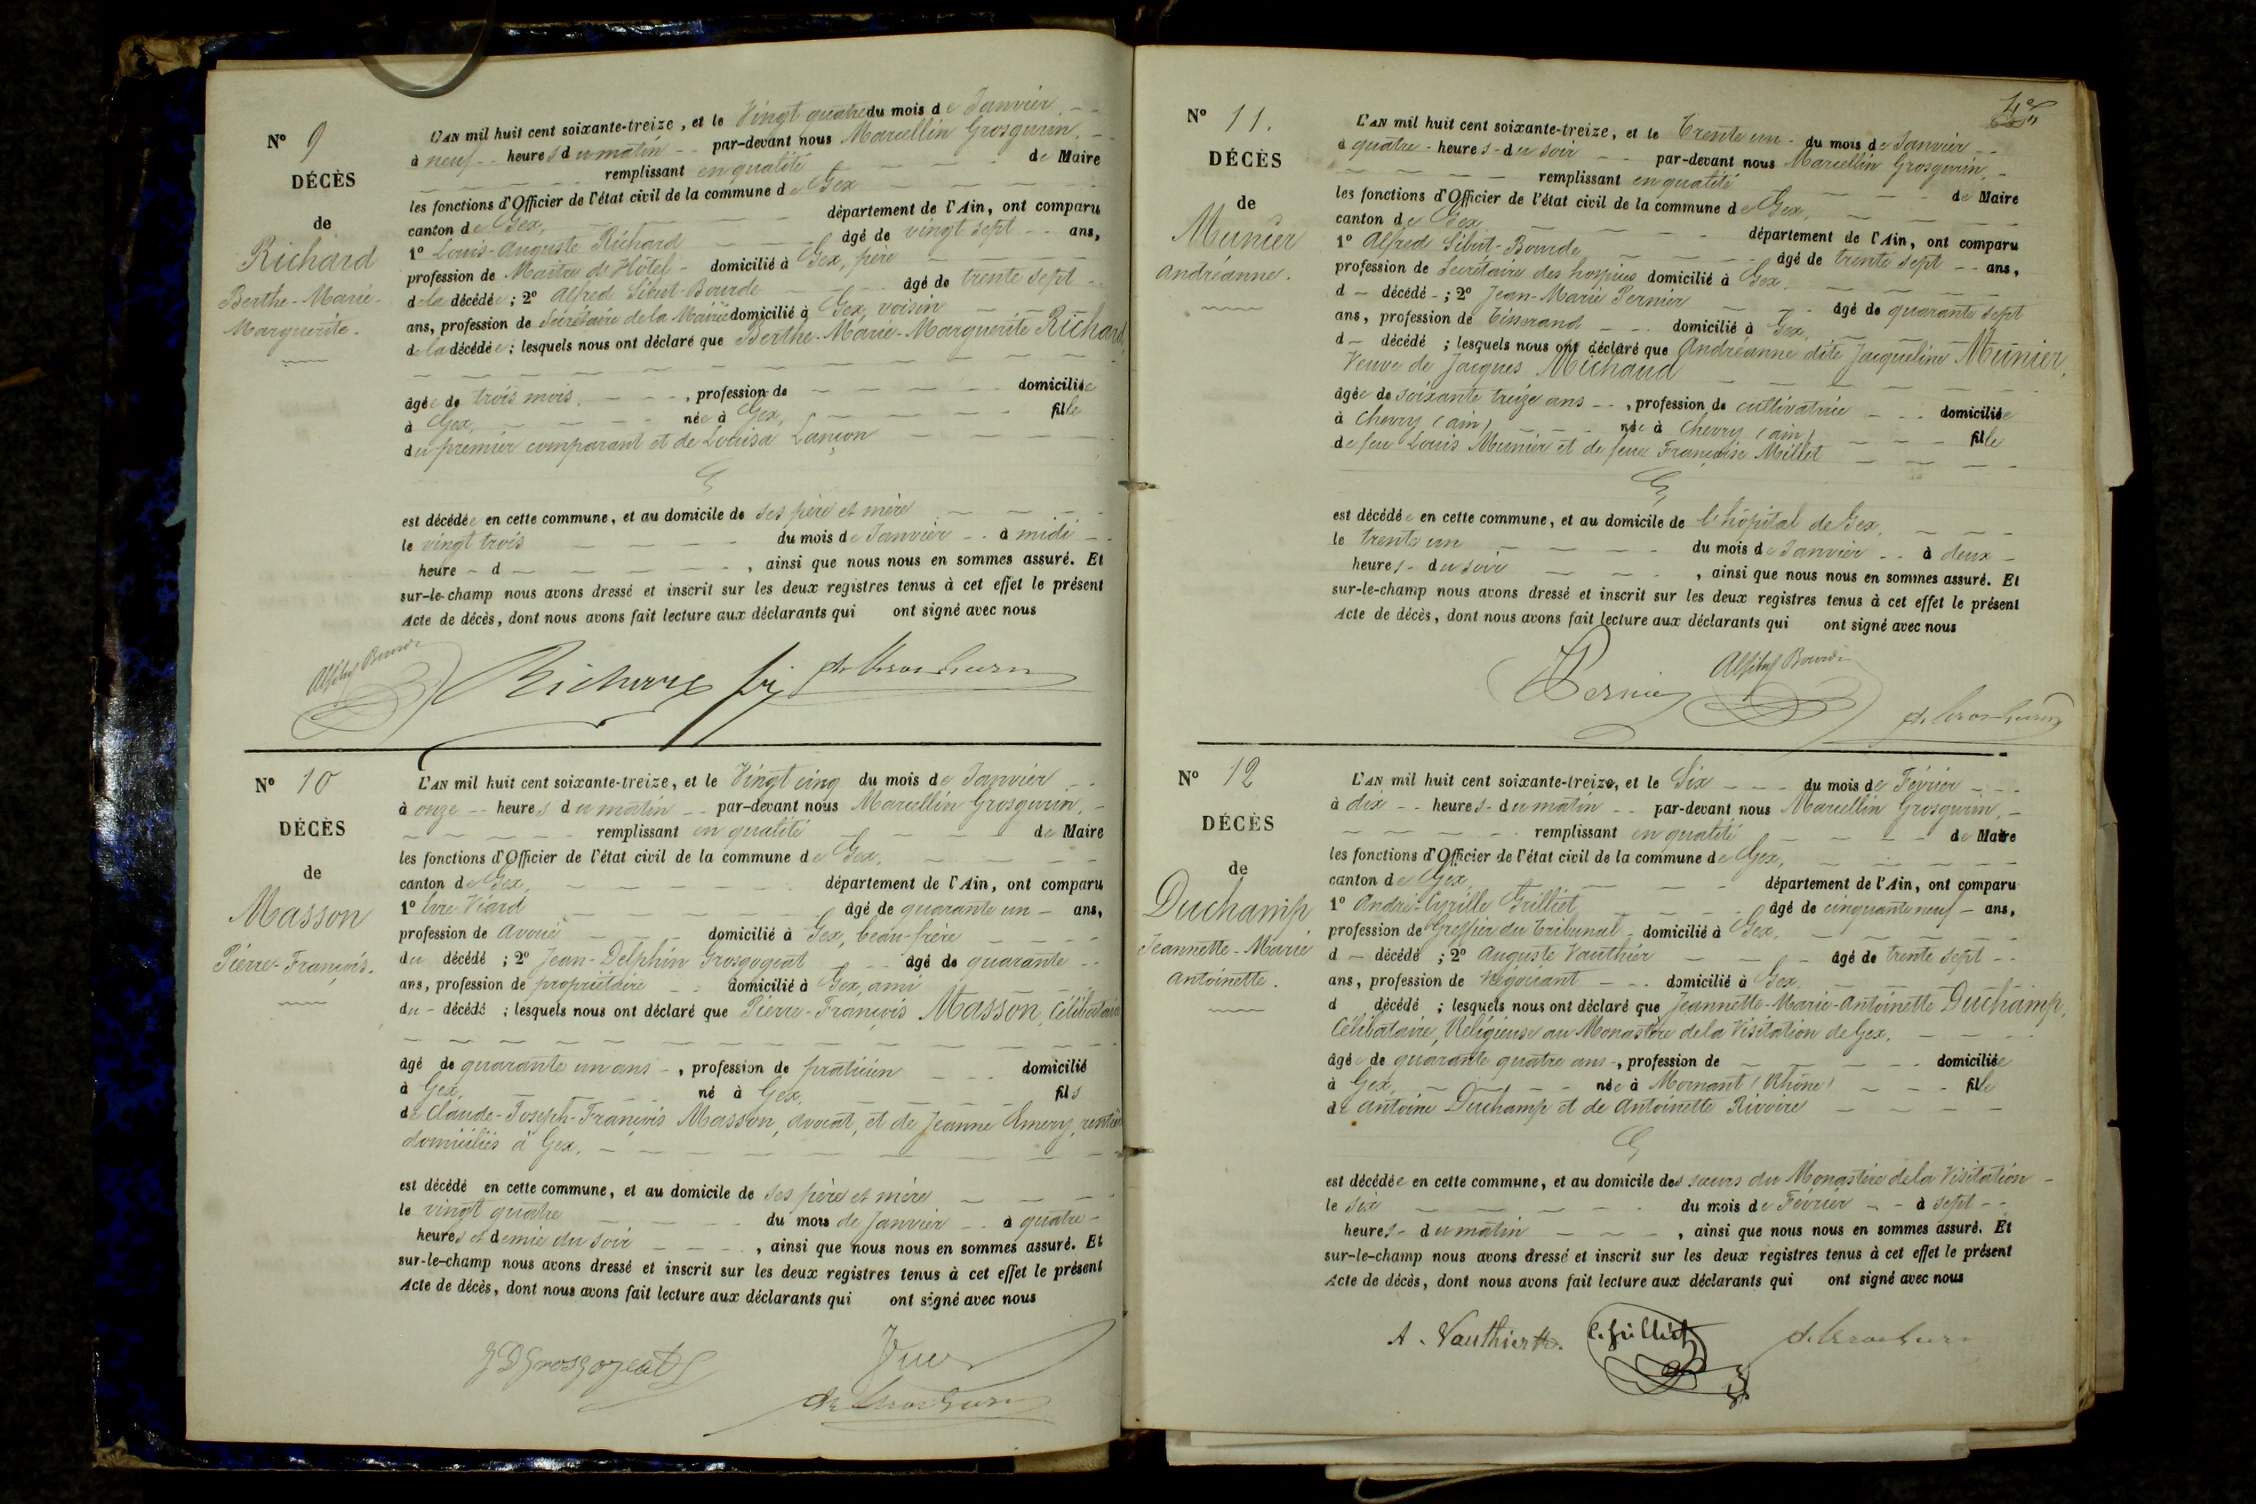 N° 9
DÉCÈS
de
Richard
Berthe-Marie-
Marguerite.
L'AN mil huit cent soixante-treize, et le Vingt quatre du mois de Janvier
à neuf heures du matin par-devant nous Marcellin Grosgurin,
remplissant en qualité de Maire
les fonctions d'Officier de l'état civil de la commune de Gex
canton de Gex, département de l'Ain, ont comparu
1° Louis-Auguste Richard âgé de vingt sept ans,
profession de Maître d'Hôtel domicilié à Gex, père
de la décédée; 2° Alfred Sibut-Bourde âgé de trente sept
ans, profession de Secrétaire de la Mairie domicilié à Gex, voisin
de la décédée; lesquels nous ont déclaré que Berthe-Marie-Marguerite Richard,
âgée de trois mois, profession de domiciliée
à Gex, née à Gex, fille
du premier comparant et de Louisa Lançon
est décédée en cette commune, et au domicile de ses père et mère
le vingt trois du mois de Janvier à midi
heure d , ainsi que nous nous en sommes assuré. Et
sur-le-champ nous avons dressé et inscrit sur les deux registres tenus à cet effet le présent
Acte de décès, dont nous avons fait lecture aux déclarants qui ont signé avec nous
Richard
N° 10
DÉCÈS
de
Masson
Pierre-François.
L'AN mil huit cent soixante-treize, et le Vingt cinq du mois de Janvier
à onze heures du matin par-devant nous Marcellin Grosgurin,
remplissant en qualité de Maire
les fonctions d'Officier de l'état civil de la commune de Gex,
canton de Gex, département de l'Ain, ont comparu
1° Viard âgé de quarante un ans,
profession de avoué domicilié à Gex, beau-frère
du décédé; 2° Jean-Delphin Grosgogeat âgé de quarante
ans, profession de propriétaire domicilié à Gex, ami
du décédé; lesquels nous ont déclaré que Pierre-François Masson, Célibataire
âgé de quarante un ans, profession de praticien domicilié
à Gex, né à Gex, fils
de Claude-Joseph-François Masson, avocat, et de Jeanne Emery, rentiers
domiciliés à Gex.
est décédé en cette commune, et au domicile de ses père et mère
le vingt quatre du mois de Janvier à quatre
heures et demie du soir, ainsi que nous nous en sommes assuré. Et
sur-le-champ nous avons dressé et inscrit sur les deux registres tenus à cet effet le présent
Acte de décès, dont nous avons fait lecture aux déclarants qui ont signé avec nous
JDGrosgogeat
N° 11.
DÉCÈS
de
Munier
Andréanne.
L'AN mil huit cent soixante-treize, et le Trente un du mois de Janvier
à quatre heures du soir par-devant nous Marcellin Grosgurin,
remplissant en qualité de Maire
les fonctions d'Officier de l'état civil de la commune de Gex,
canton de Gex département de l'Ain, ont comparu
1° Alfred Sibut-Bourde âgé de trente sept ans,
profession de Secrétaire des hospices domicilié à Gex.
d décédé; 2° Jean-Marie Pernier âgé de quarante sept
ans, profession de Tisserand domicilié à Gex,
d décédé; lesquels nous ont déclaré que Andréanne dite Jacqueline Munier,
Veuve de Jacques Michaud
âgée de soixante treize ans, profession de cultivatrice domiciliée
à Chevry (ain) née à Chevry (ain) fille
de feu Louis Munier et de feue Françoise Millet
est décédée en cette commune, et au domicile de l'hôpital de Gex,
le trente un du mois de Janvier à deux
heures du soir, ainsi que nous nous en sommes assuré. Et
sur-le-champ nous avons dressé et inscrit sur les deux registres tenus à cet effet le présent
Acte de décès, dont nous avons fait lecture aux déclarants qui ont signé avec nous
Pernier
N° 12
DÉCÈS
de
Duchamp
Jeannette-Marie
Antoinette.
L'AN mil huit cent soixante-treize, et le Six du mois de Février
à dix heures du matin par-devant nous Marcellin Grosgurin,
remplissant en qualité de Maire
les fonctions d'Officier de l'état civil de la commune de Gex,
canton de Gex département de l'Ain, ont comparu
1° André-Cyrille Grilliet âgé de cinquante neuf ans,
profession de Greffier du Tribunal domicilié à Gex.
d décédé; 2° Auguste Vauthier âgé de trente sept
ans, profession de Négociant domicilié à Gex.
d décédé; lesquels nous ont déclaré que Jeannette-Marie-Antoinette Duchamp,
Célibataire, Religieuse au Monastère de la Visitation de Gex.
âgée de quarante quatre ans, profession de domiciliée
à Gex, née à Mornant (Rhône) fille
de Antoine Duchamp et de Antoinette Rivoire
est décédée en cette commune, et au domicile des sœurs du Monastère de la Visitation
le six du mois de Février à sept
heures du matin, ainsi que nous nous en sommes assuré. Et
sur-le-champ nous avons dressé et inscrit sur les deux registres tenus à cet effet le présent
Acte de décès, dont nous avons fait lecture aux déclarants qui ont signé avec nous
A. Vauthier